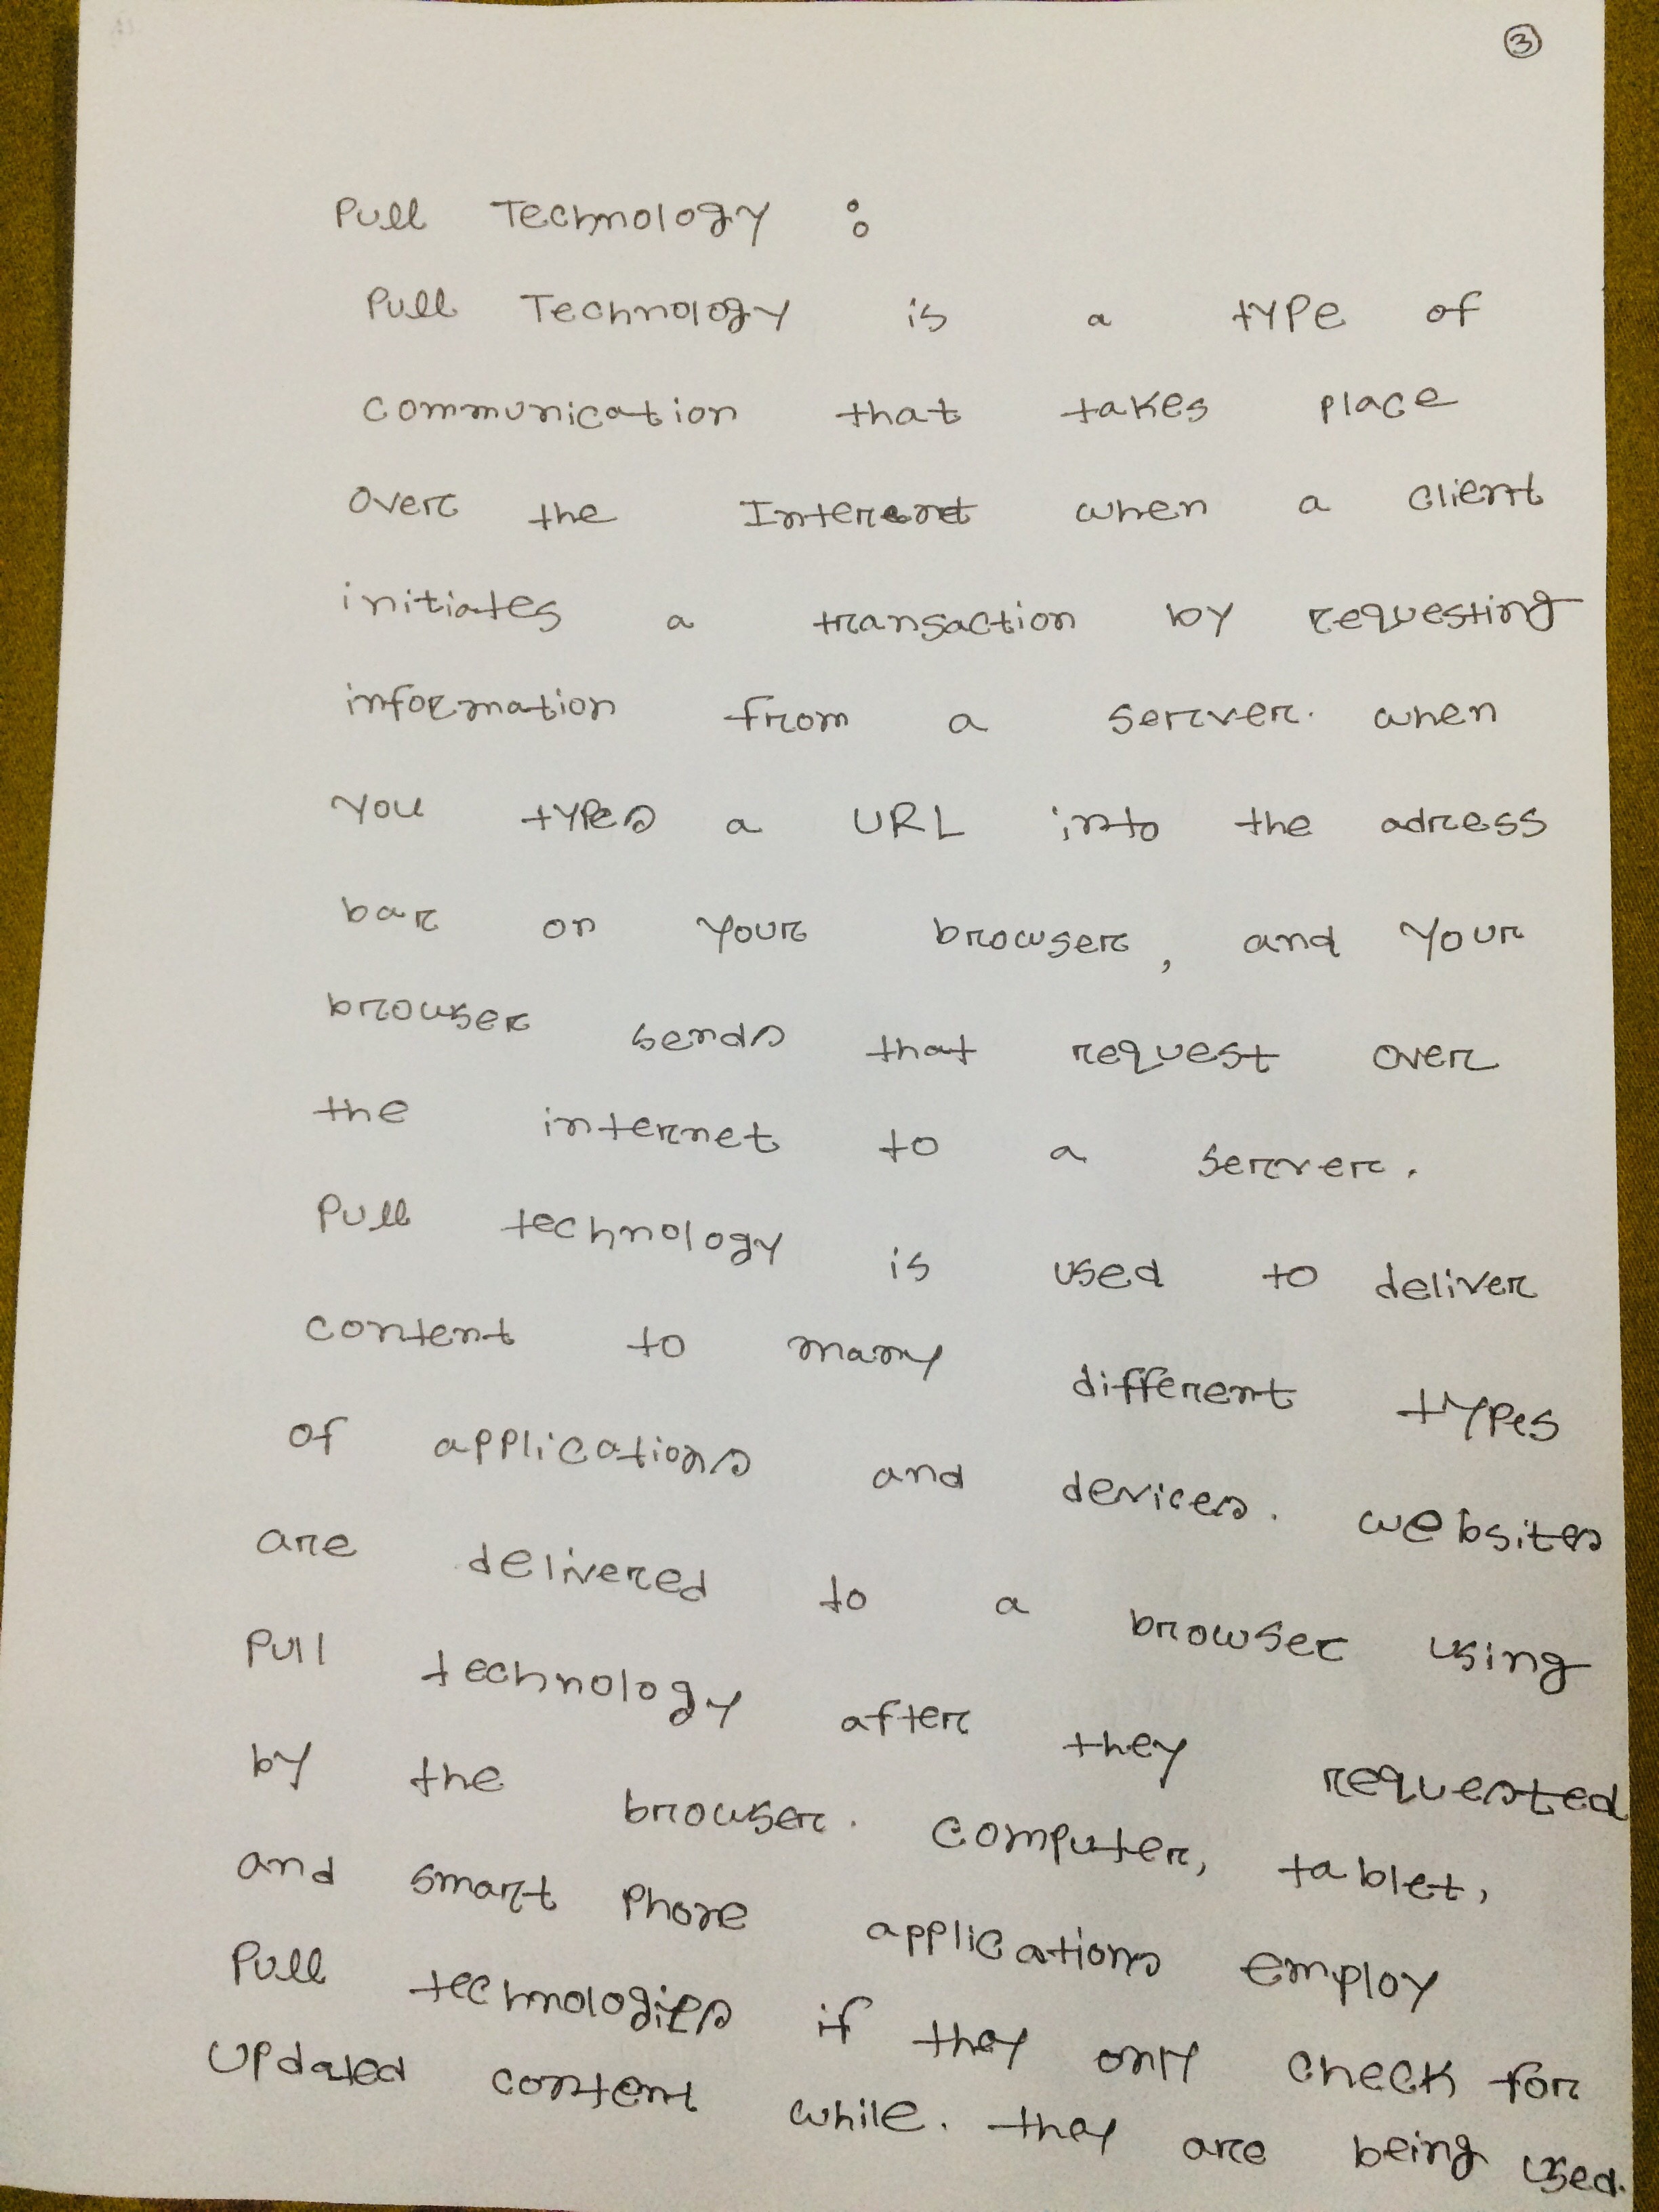 3
Pull Technology :
Pull Technology is a type of
communication that takes place
over the Internet when a client
initiates a transaction by requesting
information from a server. when
you types a URL into the adress
bar on your browser, and your
browser sends that request over
the internet to a server.
Pull technology is used to deliver
content to many different types
of applications and devices. websites
are delivered to a browser using
Pull technology after they requested
by the browser. computer, tablet,
and smart phone applications employ
Pull technologies if they only check for
updated content while. they are being used.